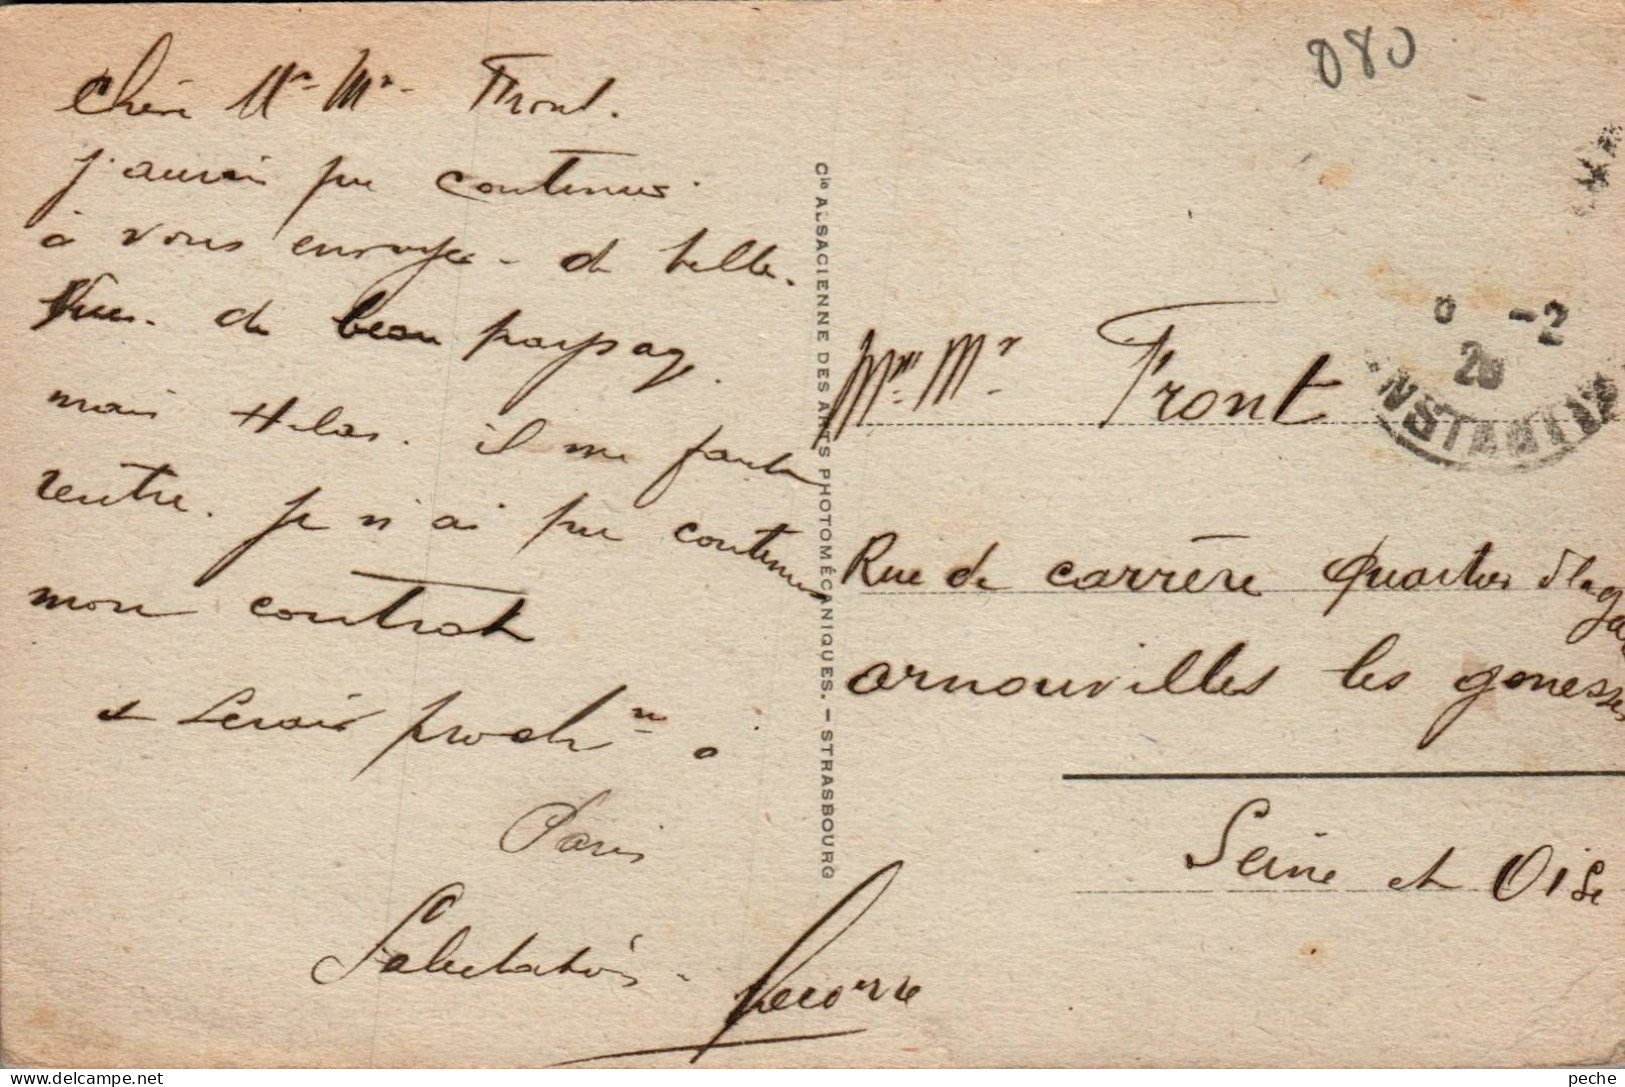 080
Chère Mme Mr Front.
j'aurai pu continuer
à vous envoyer de belle
Vue. de beau paysage.
mais Helas. il me faut
rentre. je n'ai pu continuer
mon contrat
a Revoir proch
Paris
Salutations
Lecorre
Cie ALSACIENNE DES ARTS PHOTOMÉCANIQUES. – STRASBOURG
-2
26
NSTANTIN
Mme Mr Front
Rue de carrère Quartier
arnouvilles les gonesses
Seine et Oise
peche